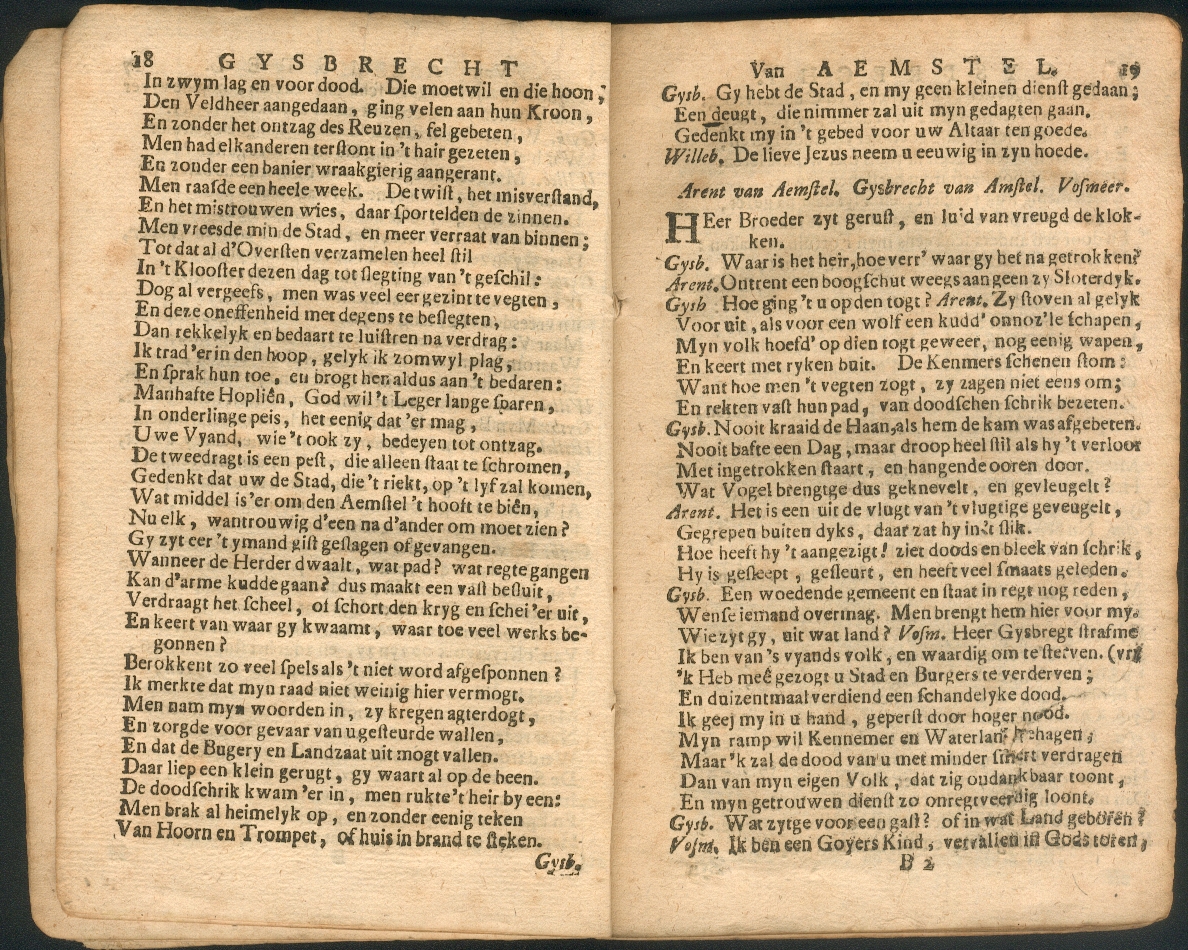 18 GYSBRECHT
In zwym lag en voor dood. Die moetwil en die hoon;
Den Veldheer aangedaan, ging velen aan hun Kroon,
En zonder het ontzag des Reuzen, fel gebeten,
Men had elkanderen terſtont in 't hair gezeten,
En zonder een banier wraakgierig aangerant.
Men raaſde een heele week. De twiſt, het misverſtand,
En het mistrouwen wies, daar ſportelden de zinnen.
Men vreesde min de Stad, en meer verraat van binnen;
Tot dat al d'Overſten verzamelen heel ſtil
In 't Klooſter dezen dag tot ſlegting van 't geſchil:
Dog al vergeefs, men was veel eer gezint te vegten,
En deze oneffenheid met degens te beſlegten,
Dan rekkelyk en bedaart te luiſtren na verdrag:
Ik trad 'er in den hoop, gelyk ik zomwyl plag,
En ſprak hun toe, en brogt hen aldus aan 't bedaren:
Manhafte Hopliên, God wil 't Leger lange ſparen,
In onderlinge peis, het eenig dat 'er mag,
Uwe Vyand, wie 't ook zy, bedeyen tot ontzag.
De tweedragt is een peſt, die alleen ſtaat te ſchromen,
Gedenkt dat uw de Stad, die 't riekt, op 't lyf zal komen,
Wat middel is 'er om den Aemſtel 't hooft te biên,
Nu elk, wantrouwig d'een na d'ander om moet zien?
Gy zyt eer 't ymand giſt geſlagen of gevangen.
Wanneer de Herder dwaalt, wat pad? wat regte gangen
Kan d'arme kudde gaan? dus maakt een vaſt beſluit,
Verdraagt het ſcheel, of ſchort den kryg en ſchei 'er uit,
En keert van waar gy kwaamt, waar toe veel werks be-
gonnen?
Berokkent zo veel ſpels als 't niet word afgeſponnen?
Ik merkte dat myn raad niet weinig hier vermogt.
Men nam myn woorden in, zy kregen agterdogt,
En zorgde voor gevaar van u geſteurde wallen,
En dat de Bugery en Landzaat uit mogt vallen.
Daar liep een klein gerugt, gy waart al op de been.
De doodſchrik kwam 'er in, men rukte 't heir by een:
Men brak al heimelyk op, en zonder eenig teken
Van Hoorn en Trompet, of huis in brand te ſteken.
Gysb.
Van AEMSTEL. 19
Gysb. Gy hebt de Stad, en my geen kleinen dienſt gedaan;
Een deugt, die nimmer zal uit myn gedagten gaan.
Gedenkt my in 't gebed voor uw Altaar ten goede.
Willeb. De lieve Jezus neem u eeuwig in zyn hoede.
Arent van Aemſtel. Gysbrecht van Amſtel. Voſmeer.
HEer Broeder zyt geruſt, en lu'd van vreugd de klok-
ken.
Gysb. Waar is het heir, hoe verr' waar gy het na getrokken?
Arent. Ontrent een boogſchut weegs aan geen zy Sloterdyk.
Gysb. Hoe ging 't u op den togt? Arent. Zy ſtoven al gelyk
Voor uit, als voor een wolf een kudd' onnoz'le ſchapen,
Myn volk hoefd' op dien togt geweer, nog eenig wapen,
En keert met ryken buit. De Kenmers ſchenen ſtom:
Want hoe men 't vegten zogt, zy zagen niet eens om;
En rekten vaſt hun pad, van doodſchen ſchrik bezeten.
Gysb. Nooit kraaid de Haan, als hem de kam was afgebeten.
Nooit bafte een Dag, maar droop heel ſtil als hy 't verloor
Met ingetrokken ſtaart, en hangende ooren door.
Wat Vogel brengtge dus geknevelt, en gevleugelt?
Arent. Het is een uit de vlugt van 't vlugtige geveugelt,
Gegrepen buiten dyks, daar zat hy in 't ſlik.
Hoe heeft hy 't aangezigt! ziet doods en bleek van ſchrik,
Hy is geſleept, geſleurt, en heeft veel ſmaats geleden.
Gysb. Een woedende gemeent en ſtaat in regt nog reden,
Wenſe iemand overmag. Men brengt hem hier voor my.
Wie zyt gy, uit wat land? Voſm. Heer Gysbregt ſtraf me
Ik ben van 's vyands volk, en waardig om te ſterven. (vry
'k Heb meê gezogt u Stad en Burgers te verderven;
En duizentmaal verdiend een ſchandelyke dood.
Ik geef my in u hand, geperſt door hoger nood.
Myn ramp wil Kennemer en Waterlan behagen,
Maar 'k zal de dood van u met minder ſmert verdragen
Dan van myn eigen Volk, dat zig oudankbaar toont,
En myn getrouwen dienſt zo onregtveerdig loont.
Gysb. Wat zytge voor een gaſt? of in wat Land geboren?
Voſm. Ik ben een Goyers Kind, vervallen in Gods toren,
B 2